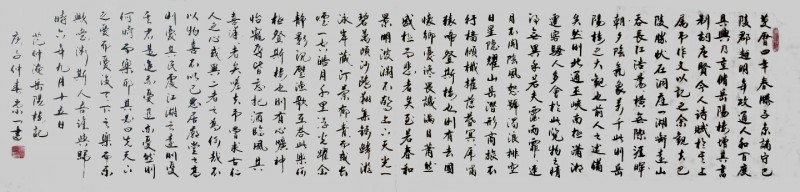 慶曆四年春滕子京謫守巴
陵郡越明年政通人和百廢
具興乃重修岳陽樓增其舊
制刻唐賢今人詩賦於其上
属予作文以記之余觀夫巴
陵勝狀在洞庭一湖銜遠山
吞長江浩浩湯湯橫無際涯暉
朝夕陰氣象萬千此則岳
陽樓之大觀也前人之述備
矣然則北通巫峽南極瀟湘
遷客騷人多會於此覽物之情
得無異乎若夫霪雨霏霏連
月不開陰風怒號濁浪排空
日星隱耀山岳潛形商旅不
行檣傾楫摧薄暮冥冥虎嘯
猿啼登斯樓也則有去國
懷鄉憂讒畏譏滿目蕭然
感極而悲者矣至若春和
景明波瀾不驚上下天光一
碧萬頃沙鷗翔集錦鱗游
泳岸芷汀蘭郁郁青青而或長
煙一空皓月千里浮光躍金
靜影沉璧漁歌互答此樂何
極登斯樓也則有心曠神
怡寵辱皆忘把酒臨風其
喜洋洋者矣嗟夫予嘗求古仁
人之心或異二者之為何哉不
以物喜不以己悲居廟堂之高
則憂其民處江湖之遠則憂
其君是進亦憂退亦憂然則
何時而樂耶其必曰先天下
之憂而憂後天下之樂而樂
歟噫微斯人吾誰與歸
時六年九月十五日
范仲淹岳陽樓記
庚子仲夏 書